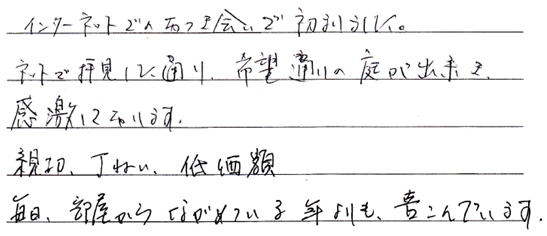 インターネットでのおつき合いで初まりました。
ネットで拝見した通り、希望通りの庭が出来き、
感激しております。
親切、丁ねい、低価額
毎日、部屋からながめている年よりも、喜こんでいます。